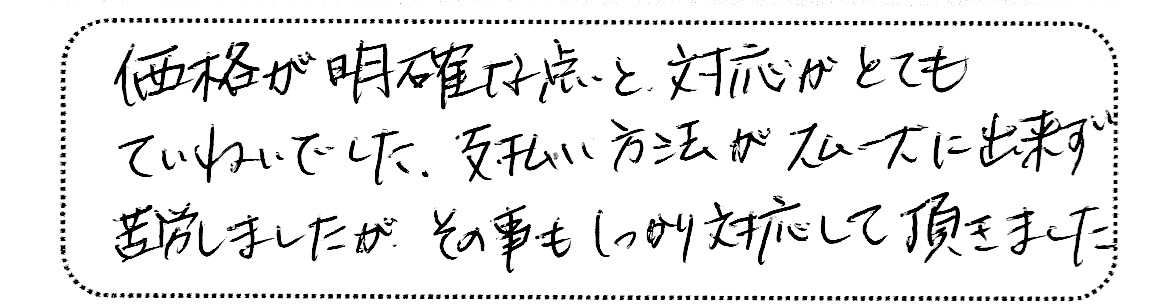 価格が明確な点と、対応がとても
ていねいでした。支払い方法がスムーズに出来ず
苦労しましたが、その事もしっかり対応して頂きました